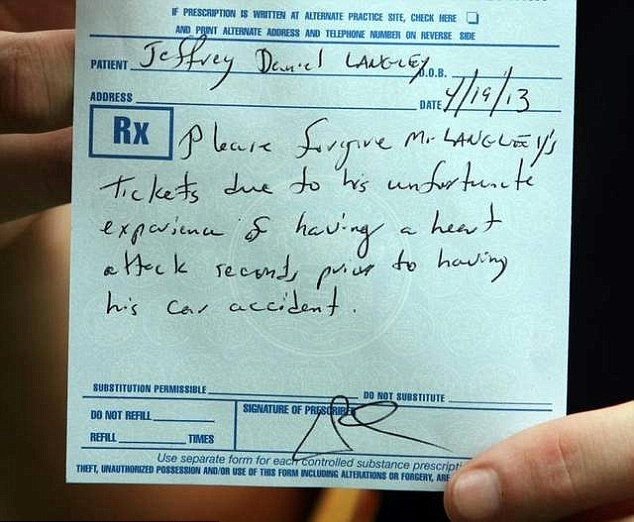 IF PRESCRIPTION IS WRITTEN AT ALTERNATE PRACTICE SITE, CHECK HERE
AND PRINT ALTERNATE ADDRESS AND TELEPHONE NUMBER ON REVERSE SIDE
PATIENT Jeffrey Daniel LANGLEY D.O.B.
ADDRESS DATE 4/19/13
Rx Please forgive Mr. LANGLEY's
tickets due to his unfortunate
experience of having a heart
attack seconds prior to having
his car accident.
SUBSTITUTION PERMISSIBLE DO NOT SUBSTITUTE
DO NOT REFILL SIGNATURE OF PRESCRIBER
REFILL TIMES
Use separate form for each controlled substance prescripti
THEFT, UNAUTHORIZED POSSESSION AND/OR USE OF THIS FORM INCLUDING ALTERATIONS OR FORGERY, ARE